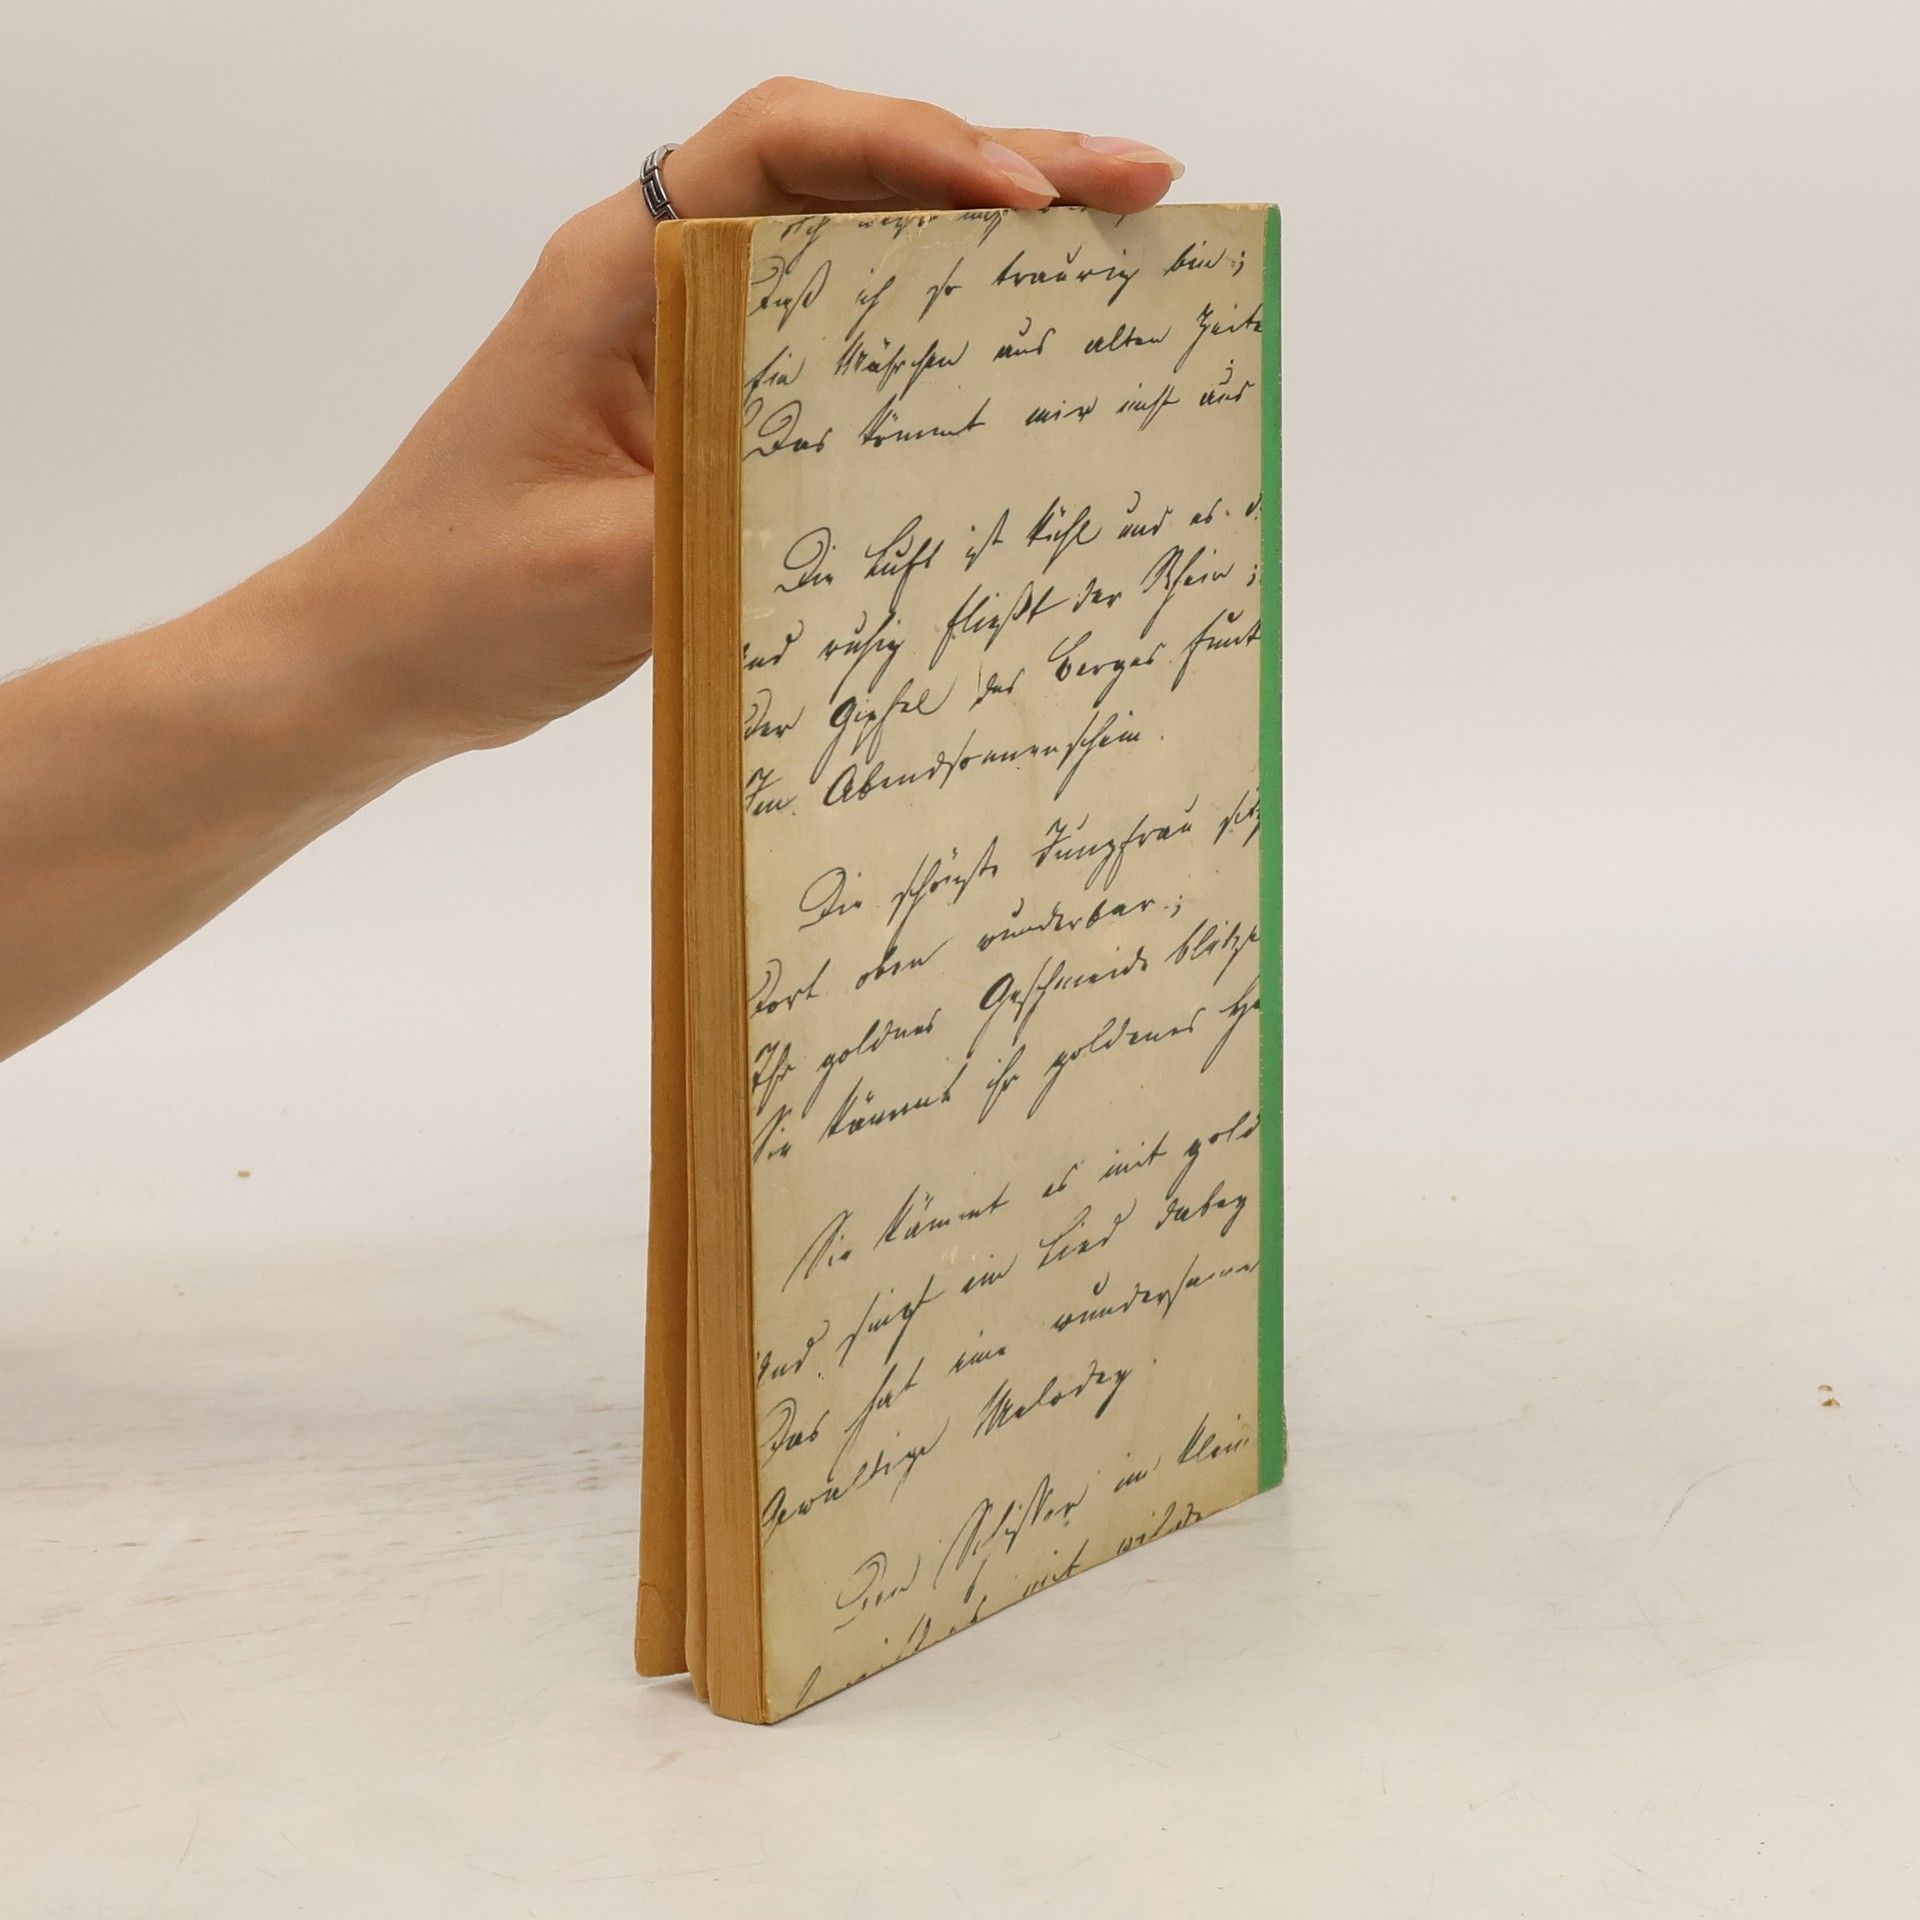 Ich weiß nicht
Daß ich so traurig bin;
Ein Mährchen aus alten Zeite
Das kömmt mir nicht aus
Die Luft ist kühl und es d
und ruhig fließt der Rhein;
Der Gipfel des Berges funk
Im Abendsonnenschein.
Die schönste Jungfrau sitz
Dort oben wunderbar;
Ihr goldnes Geschmeide blitze
Sie kämmt ihr goldenes Ha
Sie kämmt es mit gold
Und singt ein Lied dabey
Das hat eine wundersame
Gewaltige Melodey.
Den Schiffer im klein
mit wilde